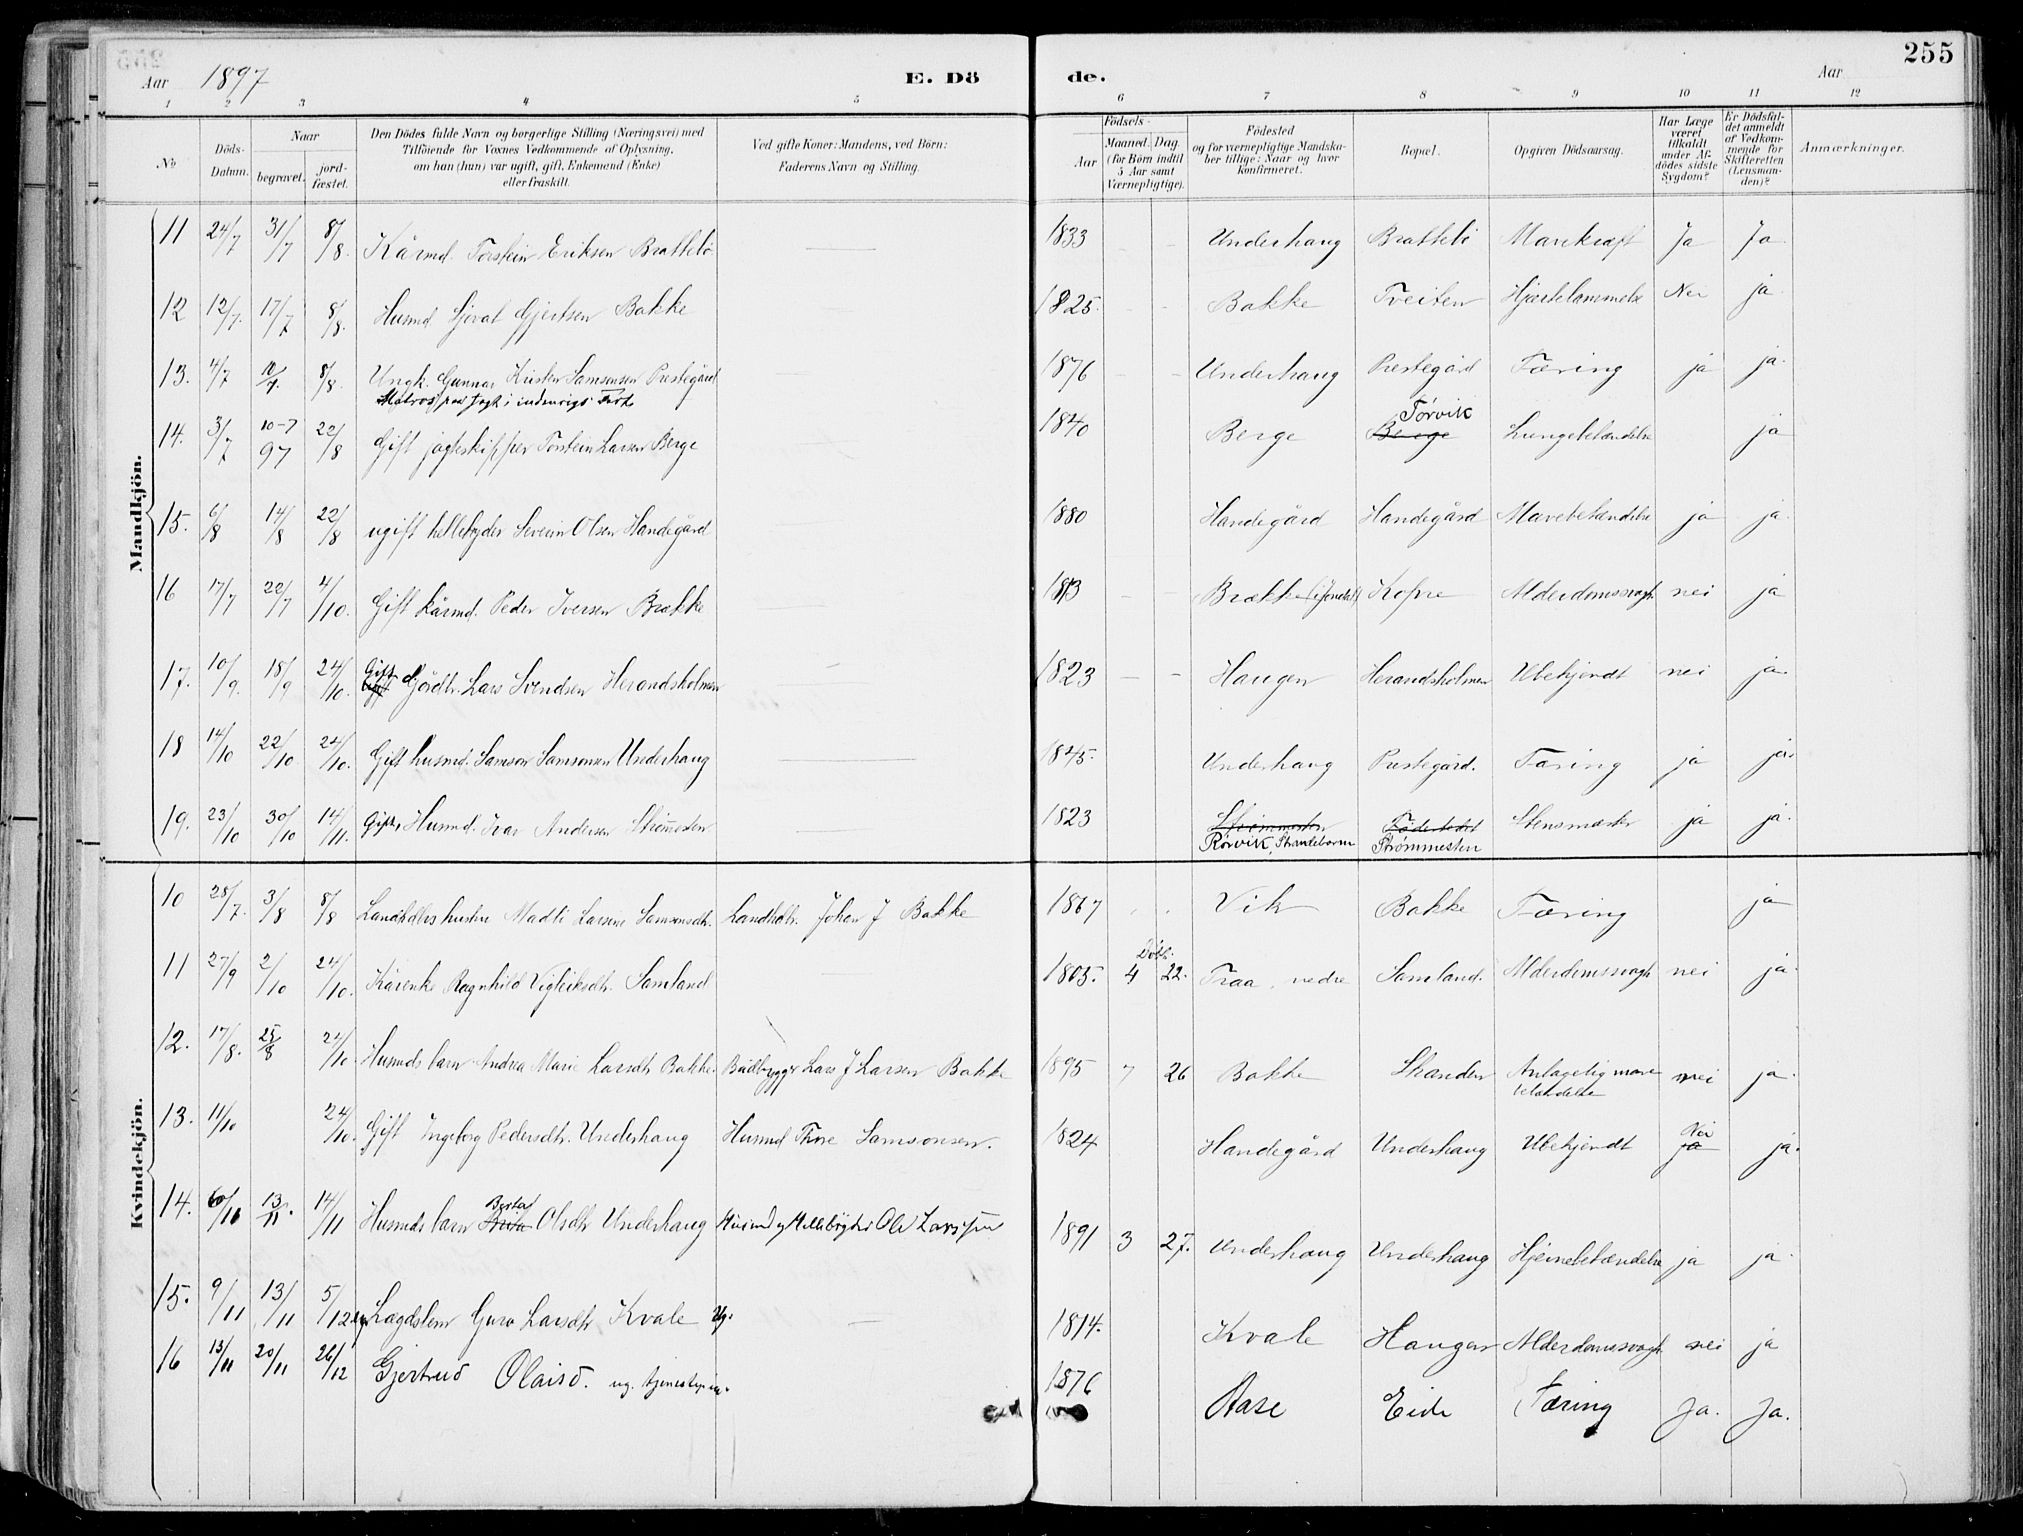 255
Aar 1897 E. Dö de. Aar
1 2 3 4 5 6 7 8 9 10 11 12
No
Döds-Datum.
Naar
begravet.
jord-fæstet.
Den Dödes fulde Navn og borgerlige Stilling (Næringsvei) med
Tilföiende for Voxnes Vedkommende af Oplysning,
om han (hun) var ugift, gift, Enkemand (Enke)
eller fraskilt.
Ved gifte Koner: Mandens, ved Börn:
Faderens Navn og Stilling.
Födsels-
Aar
Maaned. Dag.
(for Börn indtil
5 Aar samt
Værnepligtige).
Födested
og for værnepligtige Mandska-
ber tillige: Naar og hvor
konfirmeret.
Bopæl.
Opgiven Dödsaarsag.
Har Læge
været
tilkaldt
under Af-
dödes sidste
Sygdom?
Er Dödsfal-
det anmeldt
af Vedkom-
mende for
Skifteretten
(Lensman-
den)?
Anmærkninger.
Mandkjön.
11 24/7 31/7 8/8 Kårmd. Torstein Eriksen Brattebö 1833 Underhaug Brattebö Mavekræft Ja Ja
12 12/7. 17/7 8/8. Husmd. Sjovat Gjertsen Bakke 1825. Bakke Tveiten Hjertelammelse Nei ja
13. 4/7 10/7. 8/8. Ungk. Gunnar Kristen Samsonsen Prestegård 1876 Underhaug Prestegård Tæring ja ja.
Matros paa Jagt i indenrigs Fart
14. 3/7 10-7 97 22/8 Gift jagteskipper Torstein Larsen Berge 1840 Berge Tørvik Berge Lungebetændelse ja
15. 6/8 14/8 22/8 ugift hellebryder Severin Olsen Handegård 1880 Handegård Handegård Mavebetændelse ja ja.
16 17/7 22/7 4/10. Gift kårmd. Peder Iversen Brække 1813 Brække (i Jondal) Kofre Alderdomssvagh. nei ja
17. 10/9. 18/9 24/10. Gift Gårdbr. Lars Svendsen Herandsholmen 1823 Haugen Herandsholmen Ubekjendt nei ja.
18 14/10 22/10 24/10. Gift husmd. Samson Samsonsen Underhaug 1845. Underhaug Prestegård. Tæring ja ja.
19. 23/10 30/10 14/11. Gift, Husmd. Ivar Andersen Strømesten 1823 Strømmesten Fødestedet Stensmerter ja ja.
Rørvik, Strandebarm Strømmesten
Kvindekjön.
10 28/7. 3/8 8/8 Landhdlers hustru Madli Larsine Samsonsdtr. Landhdlr. Johan J Bakke 1867 Vik Bakke Tæring ja
11 27/9 2/10 24/10. Kårenke Ragnhild Vigleiksdtr. Samland 1805. Døbt. 4 22. Traa, nedre Samland. Alderdomssvagh nei ja.
12. 17/8. 25/8 24/10 Husmds barn Andrea Marie Larsdtr Bakke. Budbygger Lars J Larsen Bakke 1895 7 26 Bakke Stranden Antagelig mave nei ja.
betændelse
13. 11/10 24/10. Gift Ingeborg Pedersdtr. Underhaug Husmd Thore Samsonsen. 1824 Handegård Underhaug Ubekjendt Nei ja ja.
14. 6/11 13/11. 14/11 Husmds barn Brita Olsdtr Underhaug Husmd og Hellebryder Ole Larssen 1891 3 27. Underhaug Underhaug Hjernebetændelse ja ja.
15. 9/11 13/11 5/12 Lægdslem Guro Larsdtr Kvale ug. 1814. Kvale Haugen Alderdomssvagh nei ja
16 13/11 20/11 26/12 Gjertrud Olaisd. ug. tjenestepige. 1876 Aase Eide Tæring Ja. Ja.